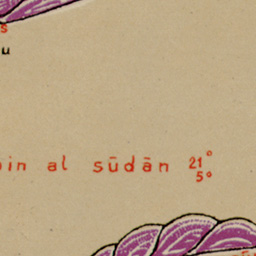 s
u
in al sūdān 21°
5°